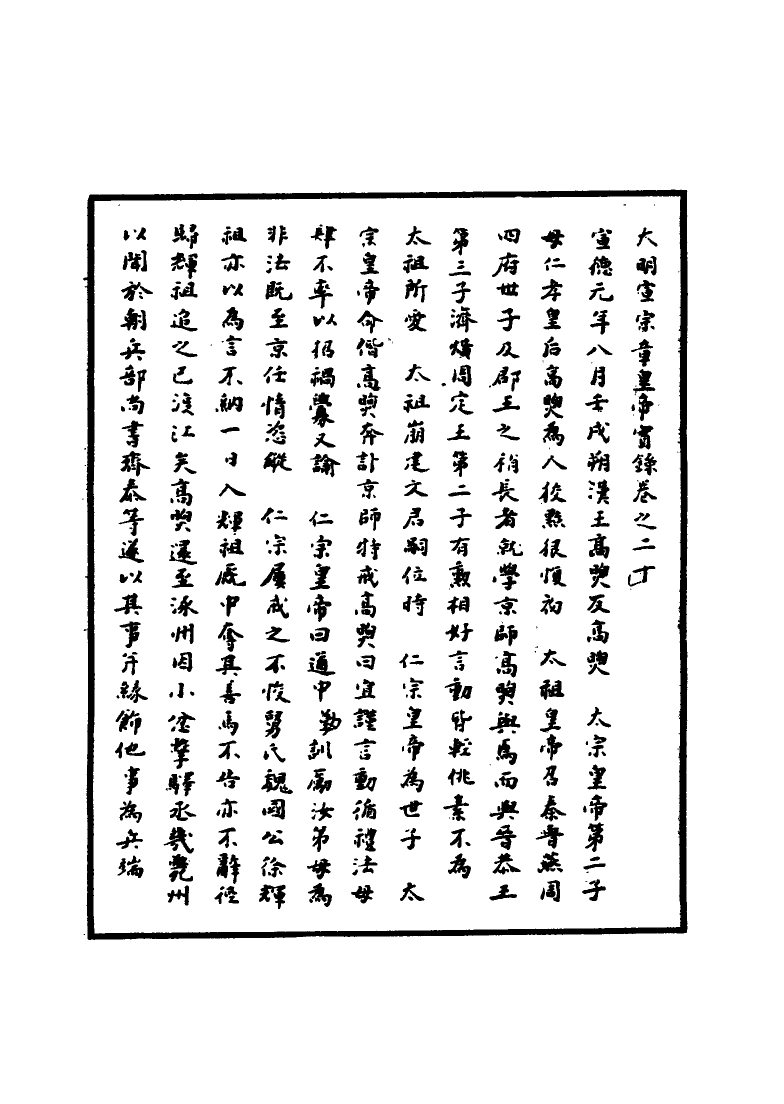 大明宣宗章皇帝實錄卷之二十
宣德元年八月壬戌朔漢王高煦反高煦　太宗皇帝第二子
母仁孝皇后高煦為人狡黠很愎初　太祖皇帝召秦晉燕周
四府世子及郡王之稍長者就學京師高煦與焉而與晉恭王
第三子濟熿周定王第二子有熏相好言動皆輕佻素不為
太祖所愛　太祖崩建文君嗣位時　仁宗皇帝為世子　太
宗皇帝命偕高煦奔訃京師特戒高煦曰宜謹言動循禮法毋
肆不率以招禍釁又諭　仁宗皇帝曰道中勤訓勵汝弟毋為
非法既至京任情恣縱　仁宗屢戒之不悛舅氏魏國公徐輝
祖亦以為言不納一日入輝祖廄中奪其善馬不告亦不辭徑
歸輝祖追之已渡江矣高煦還至涿州因小忿擊驛丞幾斃州
以聞於朝兵部尚書齊泰等遂以其事并緣飾他事為兵端